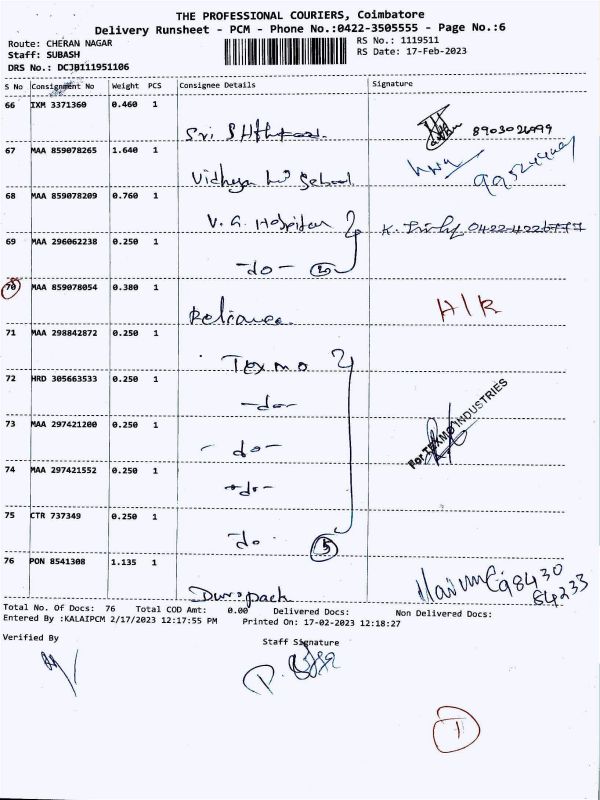 THE PROFESSIONAL COURIERS, Coimbatore
Delivery Runsheet - PCM - Phone No.:0422-3505555 - Page No.:6
Route: CHERAN NAGAR
RS No.: 1119511
Staff: SUBASH
RS Date: 17-Feb-2023
DRS No.: DCJB111951106
S No Consignment No Weight PCS Consignee Details Signature
66 IXM 3371360 0.460 1
Sri
67 MAA 859078265 1.640 1
Vidhya School
68 MAA 859078209 0.760 1
V.G. Hospital
K. 0422-4226777
69 MAA 296062238 0.250 1
-do- 2
70 MAA 859078054 0.380 1
Reliance H/R
71 MAA 298842872 0.250 1
Texmo
72 HRD 305663533 0.250 1
-do-
73 MAA 297421200 0.250 1
-do-
For TEXMO INDUSTRIES
74 MAA 297421552 0.250 1
-do-
75 CTR 737349 0.250 1
do 5
76 PON 8541308 1.135 1
Duropack 98430
84233
Total No. Of Docs: 76 Total COD Amt: 0.00 Delivered Docs: Non Delivered Docs:
Entered By :KALAIPCM 2/17/2023 12:17:55 PM Printed On: 17-02-2023 12:18:27
Verified By Staff Signature